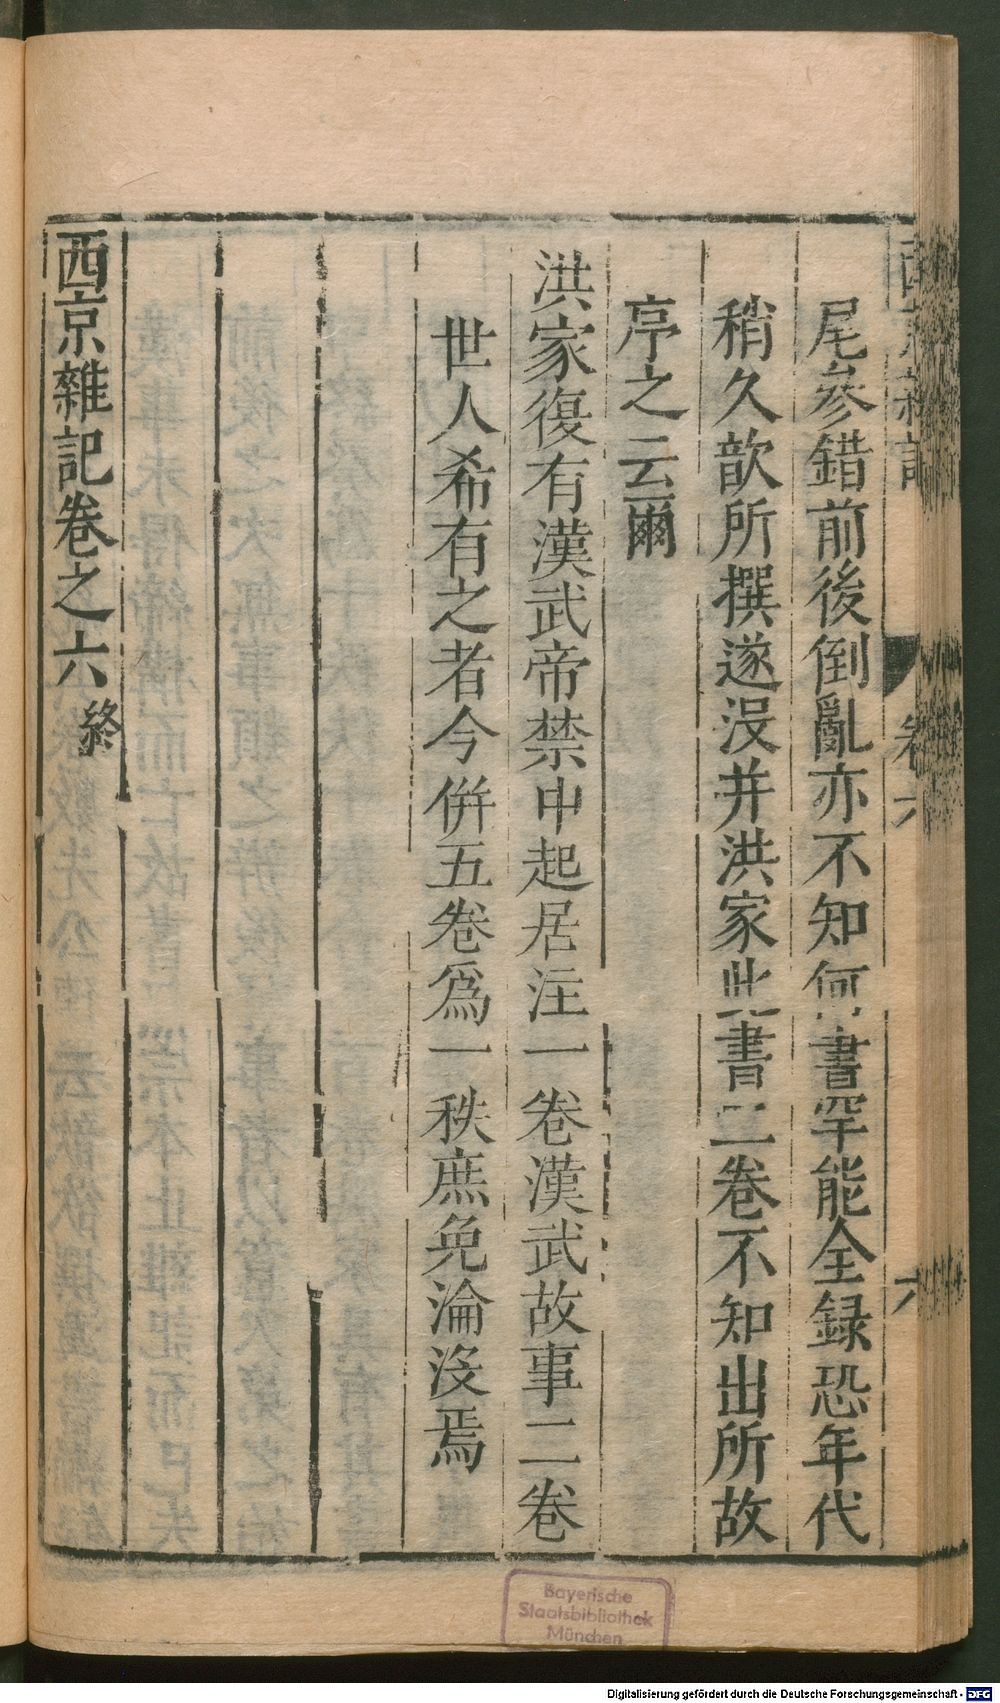 尾參錯前後倒亂亦不知何書罕能全録恐年代
稍久歆所撰遂没并洪家此書二卷不知出所故
序之云爾
洪家復有漢武帝禁中起居注一卷漢武故事二卷
世人希有之者今併五卷爲一秩庶免淪没焉
西京雜記卷之六終
卷六
六
Bayerische
Staatsbibliothek
München
Digitalisierung gefördert durch die Deutsche Forschungsgemeinschaft - DFG